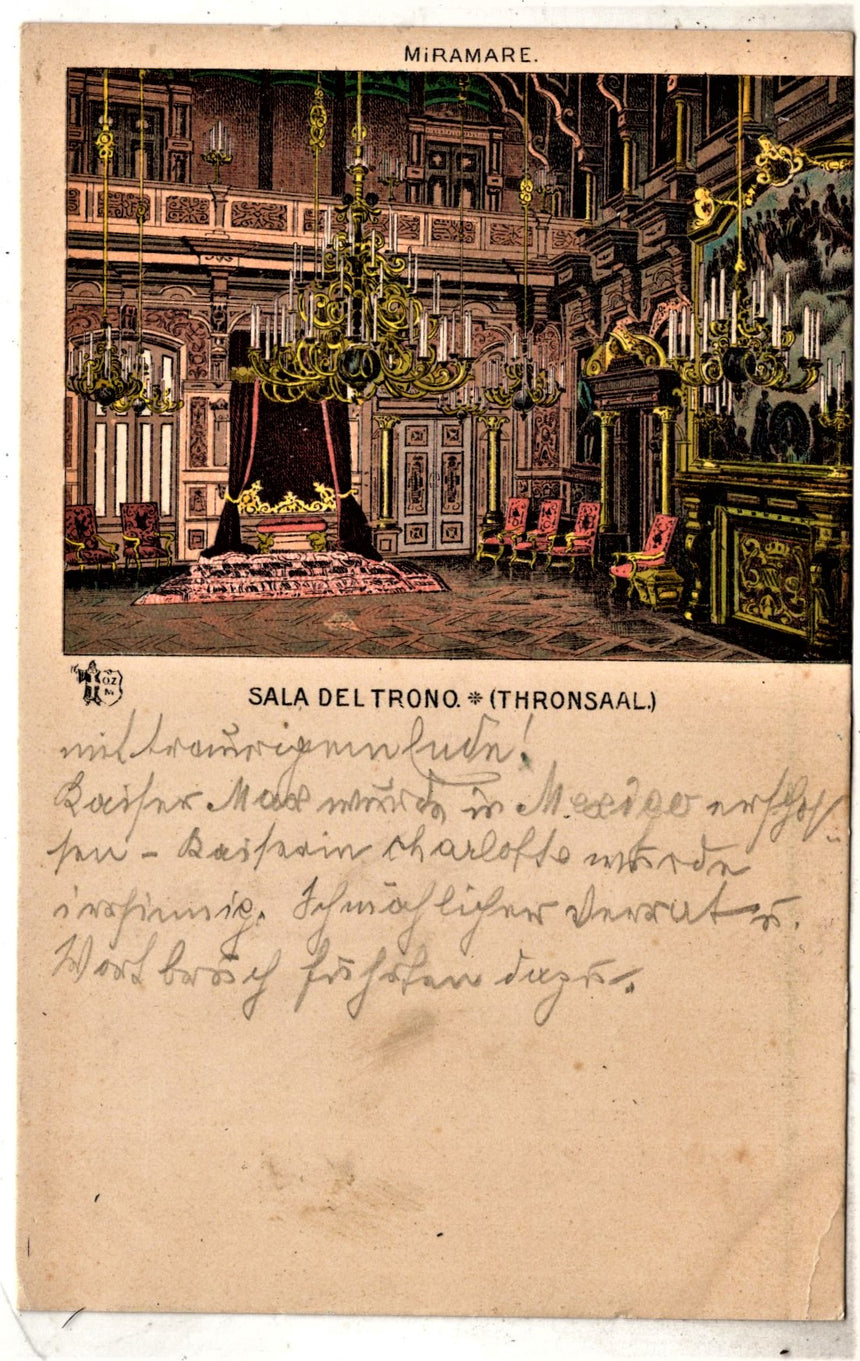 MIRAMARE.
OZ
M
SALA DEL TRONO. * (THRONSAAL.)
mit traurigem Ende!
Kaiser Max wurde in Mexigo erschos-
sen – Kaiserin Charlotte wurde
irrsinnig. Schmählicher Verrat u.
Wortbruch führten dazu.